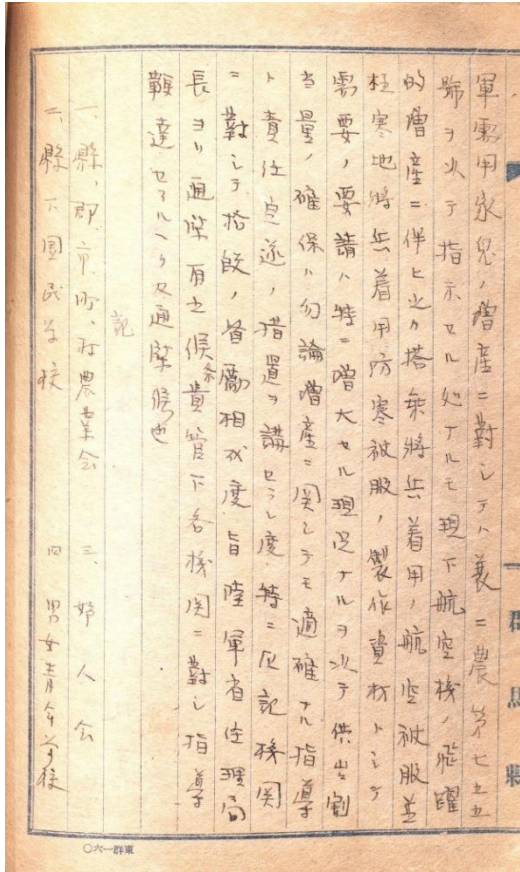 軍需用家兎ノ増産ニ対シテハ襄ニ農第七五五
号ヲ以テ指示セル処ナルモ現下航空機ノ飛躍
的増産ニ伴ヒ之カ搭乗将兵着用ノ航空被服並
極寒地将兵着用防寒被服ノ製作資材トシテ
需要ノ要請ハ特ニ増大セル現況ナルヲ以テ供出割
当量ノ確保ハ勿論増産ニ関シテモ適確ナル指導
ト責任完遂ノ措置ヲ講セラレ度特ニ左記機関
ニ対シテ格段ノ督励相成度旨陸軍省経理局
長ヨリ通牒有之候条貴管下各機関ニ対シ指導
鞭達セラルヘク及通牒候也
記
一、縣、郡、市、町、村農業会
二、縣下国民学校
三、婦人会
四、男女青年学校
群馬縣
東群一六〇